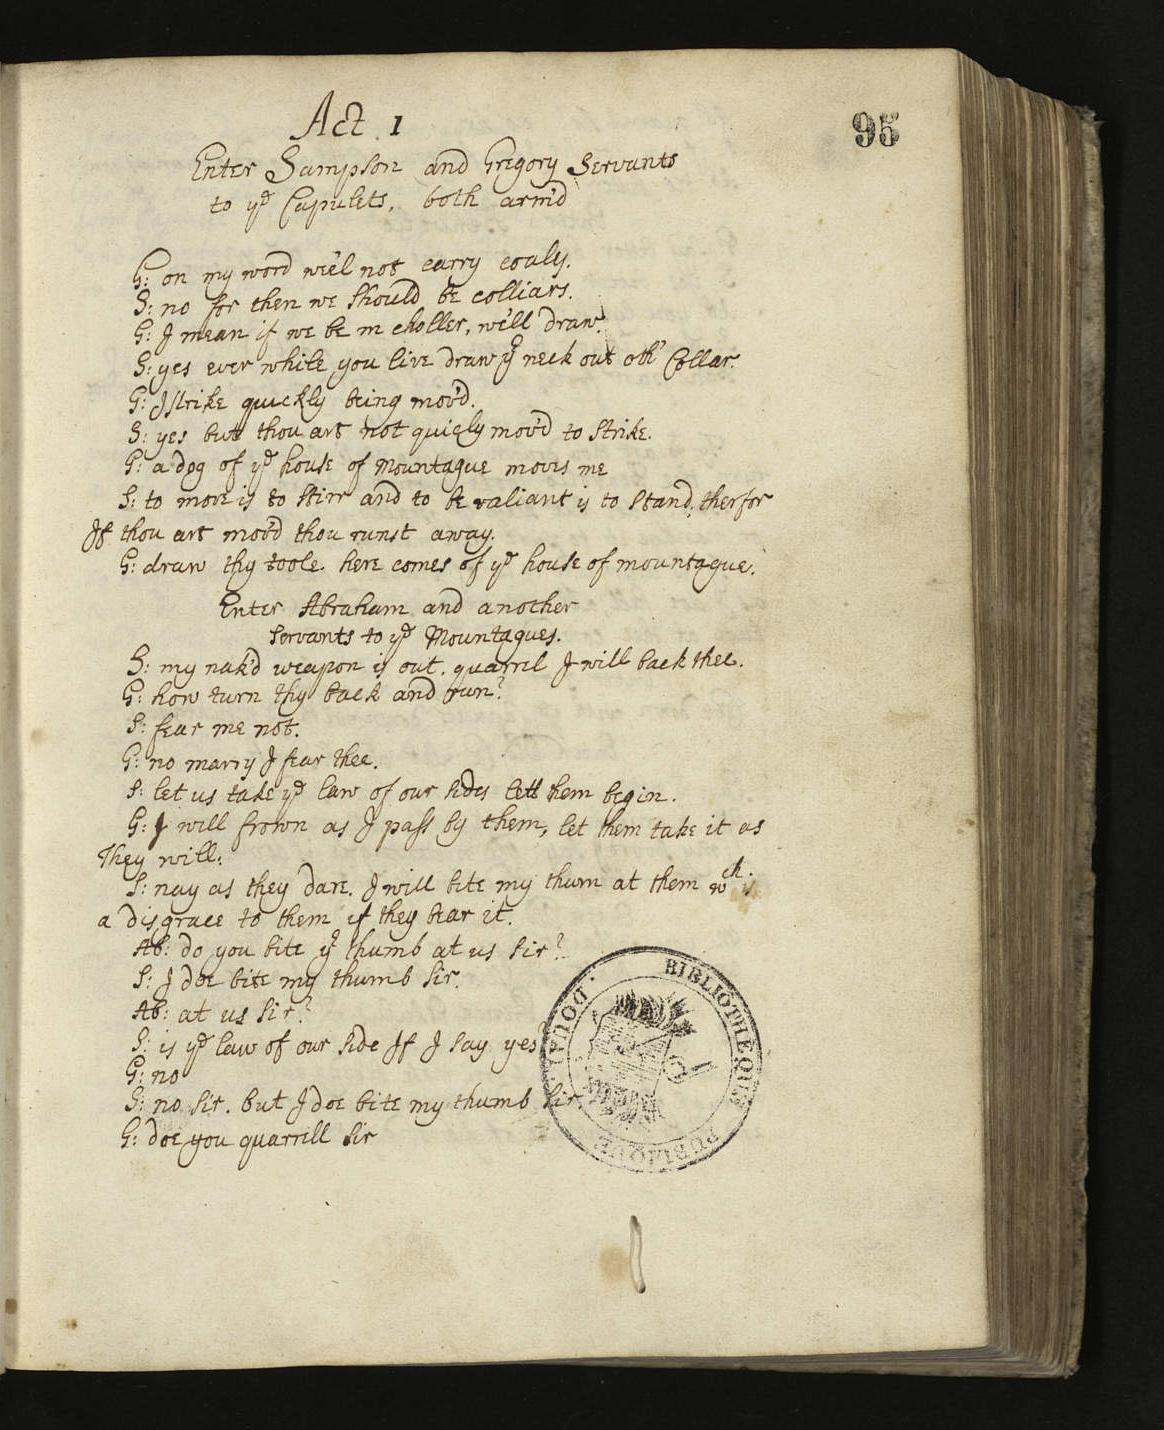 Act 1
95
Enter Sampson and Gregory Servants
to yᵉ Capulets, both arm'd
G: on my word wee'l not carry coaly.
S: no for then we should be colliars.
G: I mean if we be in choller, we'll draw.
S: yes ever while you live draw yʳ neck out oth' Collar.
G: I strike quickly being mov'd.
S: yes but thou art not quicly mov'd to strike.
G: a dog of yᵉ house of Mountague moves me
S: to move is to stirr and to be valiant is to stand, therfor
If thou art mov'd thou runst away.
G: draw thy toole here comes of yᵉ house of mountague.
Enter Abraham and another
servants to yᵉ Mountagues.
S: my nak'd weapon is out. quarrel I will back thee.
G: how turn thy back and run?
S: fear me not.
G: no marry I fear thee.
S: let us take yᵉ law of our sides lett hem begin.
G: I will frown as I pass by them, let them take it as
They will.
S: nay as they dare. I will bite my thum at them wᶜʰ is
a disgrace to them if they bear it.
Ab: do you bite yʳ thumb at us sir?
S: I doe bite my thumb sir.
Ab: at us sir?
S: is yᵉ law of our side If I say yes?
G: no
S: no sir. but I doe bite my thumb sir.
G: doe you quarrell sir
BIBLIOTHEQUE PUBLIQUE DOUAI